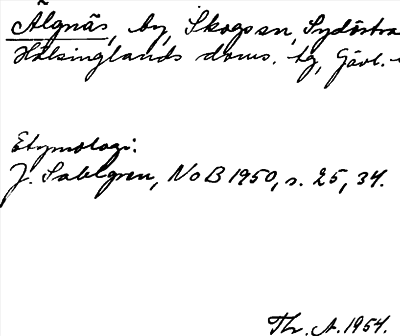 Älgnäs, by, Skogs sn, Sydöstra
Hälsinglands doms. tg, Gävl.
Etymologi:
J. Sahlgren, NoB 1950, s. 25, 34.
Thr. A. 1954.